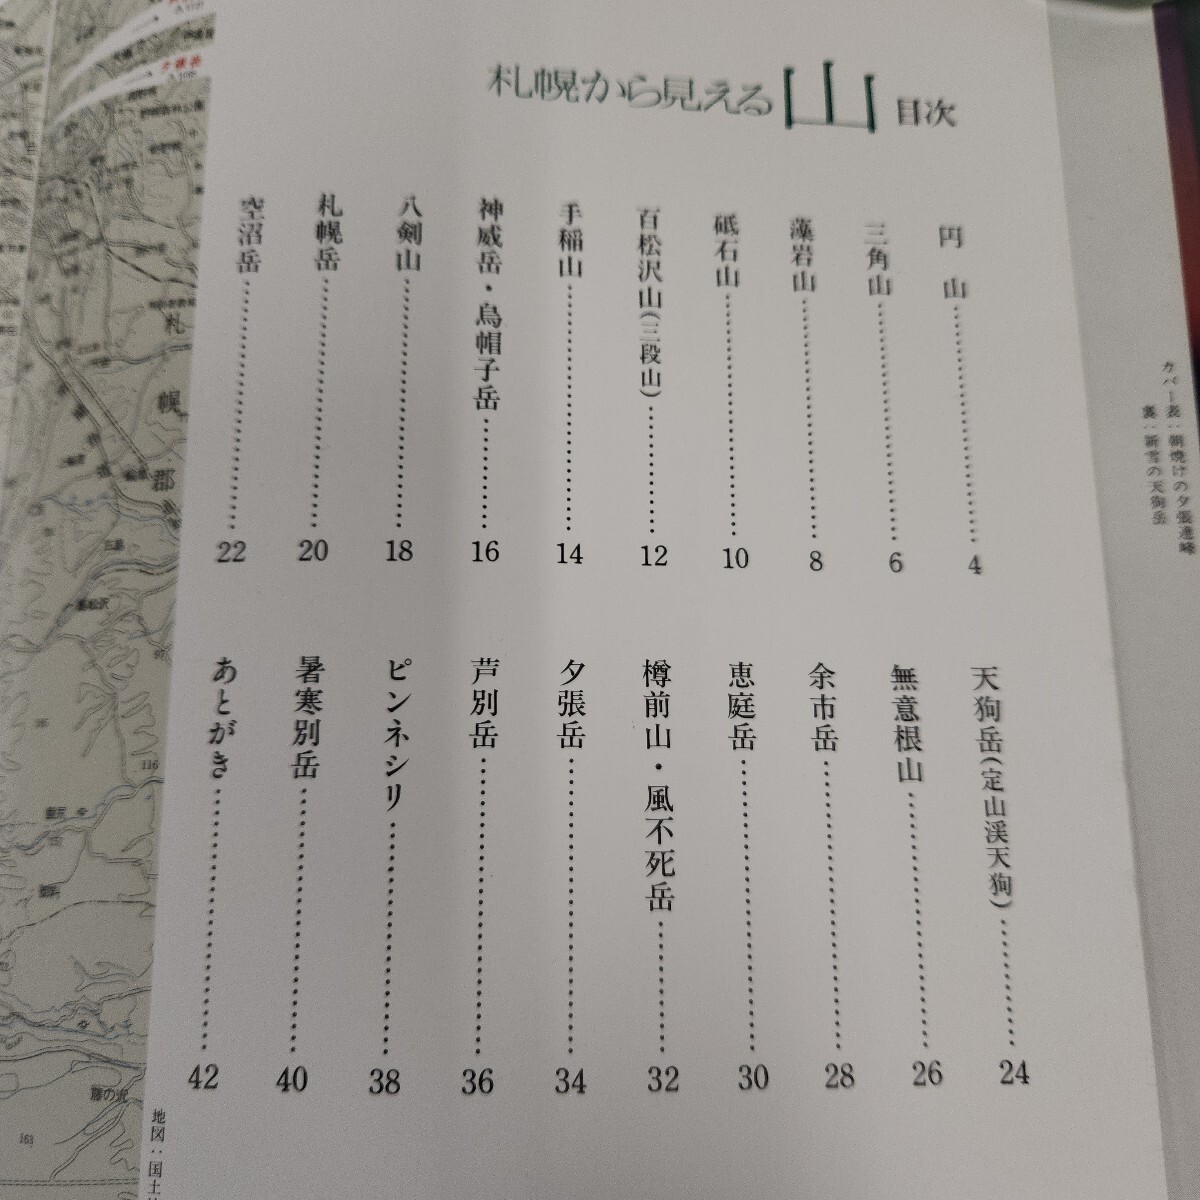 札幌から見える山 目次
円山 4
三角山 6
藻岩山 8
砥石山 10
百松沢山(三段山) 12
手稲山 14
神威岳・烏帽子岳 16
八剣山 18
札幌岳 20
空沼岳 22
天狗岳(定山渓天狗) 24
無意根山 26
余市岳 28
恵庭岳 30
樽前山・風不死岳 32
夕張岳 34
芦別岳 36
ピンネシリ 38
暑寒別岳 40
あとがき 42
カバー表:朝焼けの夕張連峰
裏:新雪の天狗岳
地図:国土
札
幌
郡
藤の沢
116
163